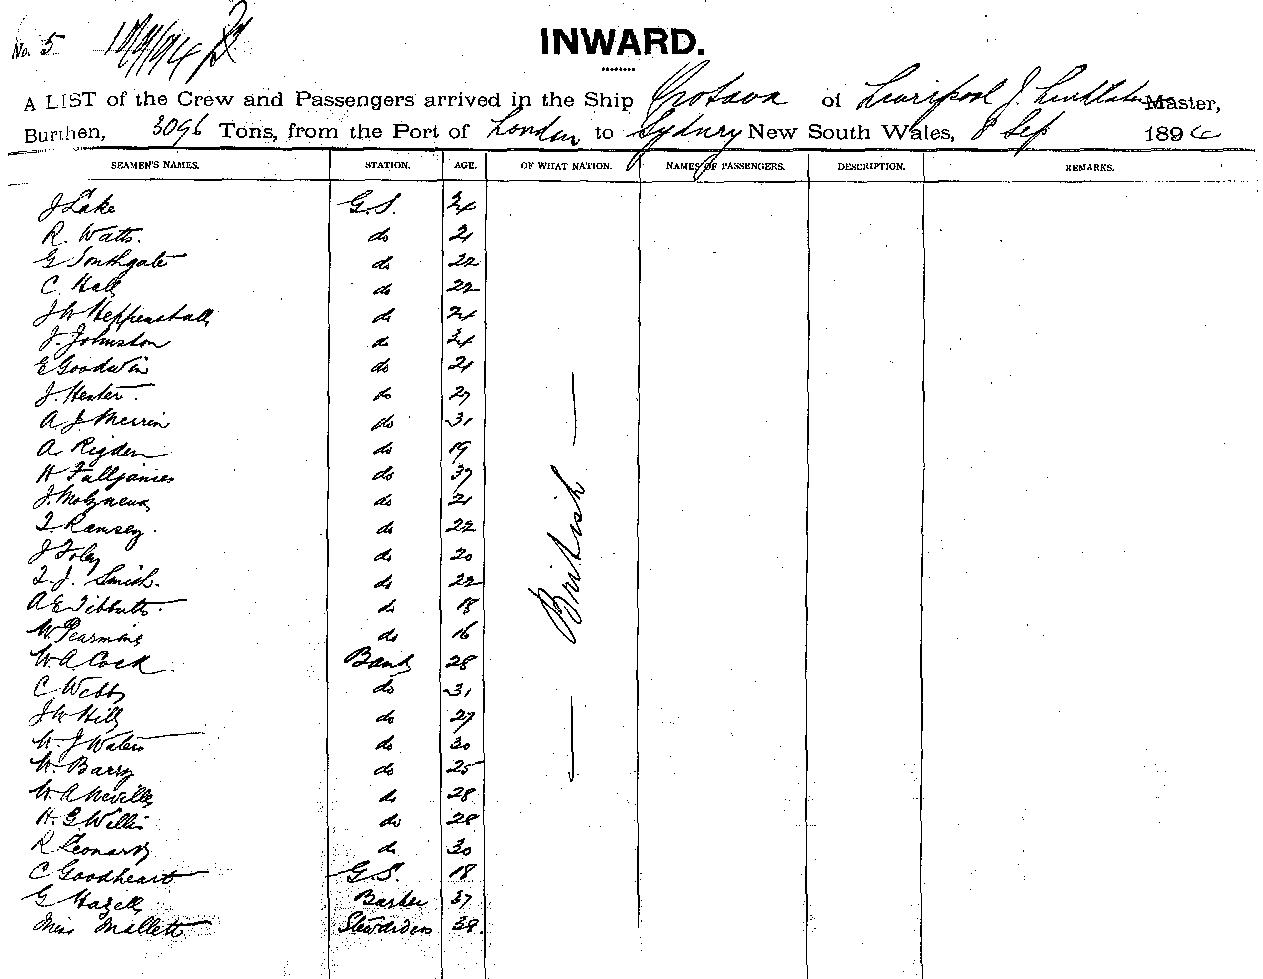 No. 5
INWARD.
A LIST of the Crew and Passengers arrived in the Ship Orotava of Liverpool J. Master,
Burthen, 3096 Tons, from the Port of London to Sydney New South Wales, 8 Sep 1894
SEAMEN'S NAMES. STATION. AGE. OF WHAT NATION. NAMES OF PASSENGERS. DESCRIPTION. REMARKS.
J Lake G.S. 24
R. Watts. do 21
G Southgate do 22
C. Hall do 22
J W Heppenstall do 24
J. Johnston do 34
E Goodwin do 21
J. Henter do 27
A J. Merrin do 31
A Rigden do 19
H Falljames do 37
J. Molyneux do 21
T Ramsey. do 22
J Foley do 20
T. J. Smith. do 22
A E Tibbutts. do 18
W Pearmine do 16
W. A. Cock Band 28
C Webb do 31
J W Hill do 27
W. J Waters do 30
W. Barry do 25
W. A Neville do 28
H. G Willis do 28
R Leonard do 30
C Goodheart G.S. 18
G Hazell Barber 37
Miss Mallett Stewardess 38.
— British —